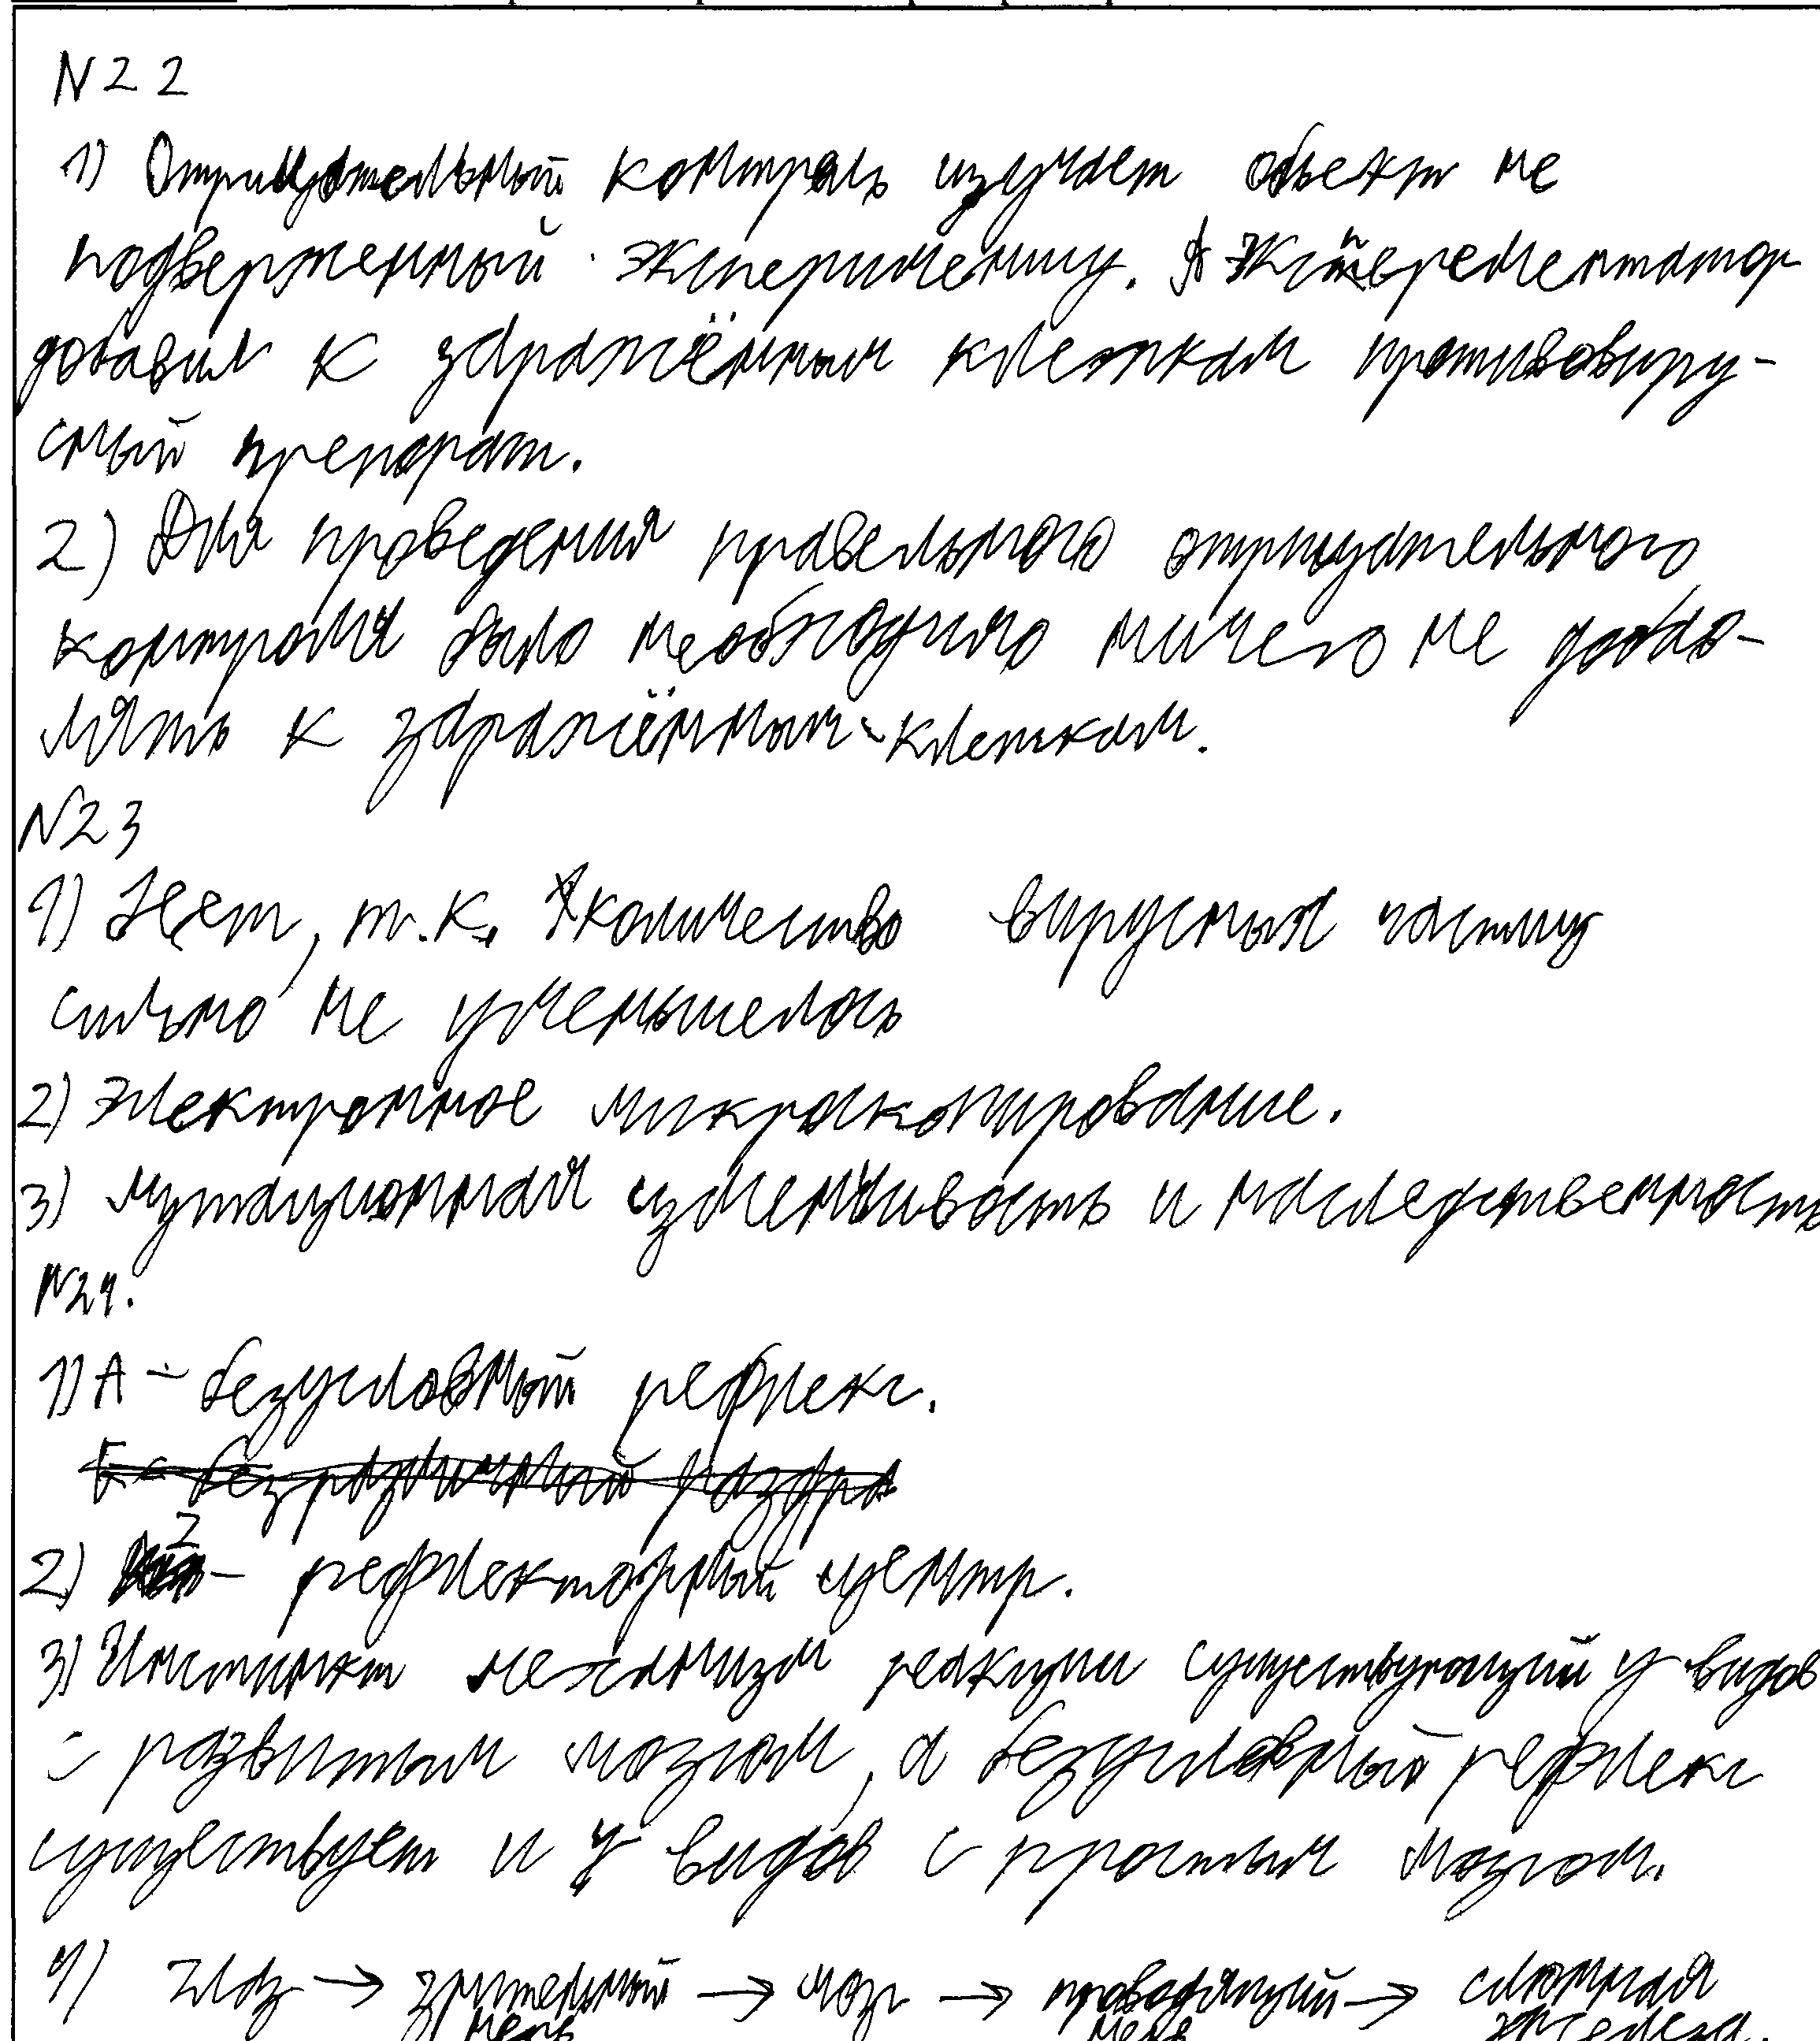 N22
1) Отрицательный контроль изучает объект не
подверженный эксперименту. Эксперементатор
добавил к заражённым клеткам противовиру-
сный препорат.
2) Для проведения правельного отрицательного
контроля было необходимо ничего не добав-
лять к заражённым клеткам.
N23
1) Нет, т.к. количество вирусных частиц
сильно не уменьшелось
2) Электронное микроскопирование.
3) Мутационная изменчивость и наследственность
N24.
1) А - безусловный рефлекс.
Б - безразличный раздра
2) 2 - рефлекторный центр.
3) Инстинкт механизм реакции существующий у видов
с развитым мозгом, а безусловный рефлекс
существует и у видов с простым мозгом.
4) Глаз → зрительный → мозг → проводящий → слюнная
нерв нерв железа.